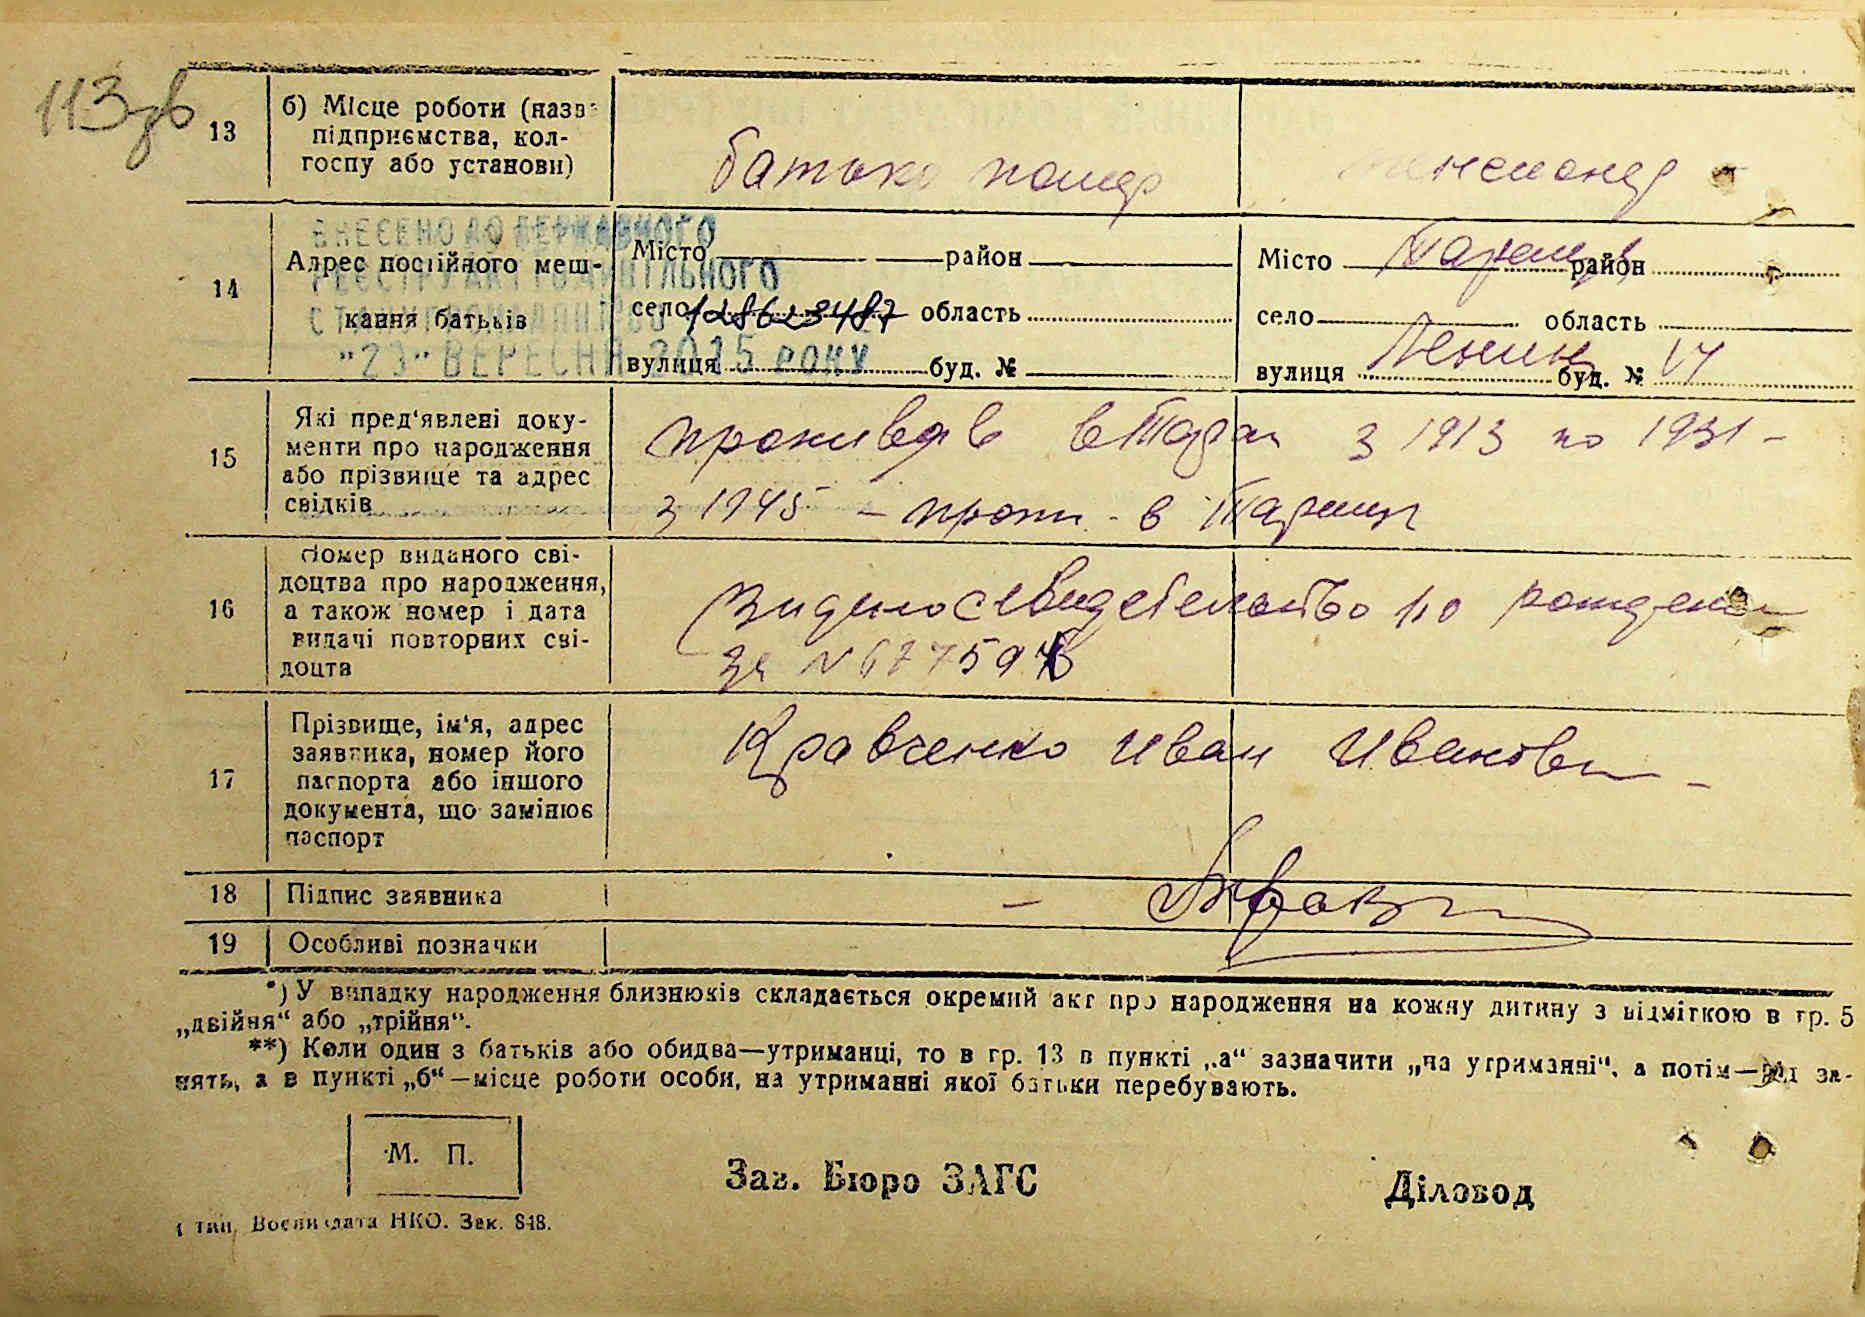 113зв
13
б) Місце роботи (назв
підприємства, кол-
госпу або установи)
батько помер
пенсионер
ВНЕСЕНО ДО ДЕРЖАВНОГО
РЕЄСТРУ АКТІВ ЦИВІЛЬНОГО
СТАНУ ГРОМАДЯН
"23" ВЕРЕСНЯ 2015 РОКУ
14
Адрес постійного меш-
кання батьків
Місто район
село 128623487 область
вулиця буд. №
Місто Таращ район
село область
вулиця Ленина буд. № 14
15
Які пред'явлені доку-
менти про народження
або прізвище та адрес
свідків
проживав в з 1913 по 1931 -
з 1945 - прож - в Таращі
16
Номер виданого сві-
доцтва про народження,
а також номер і дата
видачі повторних сві-
доцтв
Видано свидетельство по рожден
за №
17
Прізвище, ім'я, адрес
заявника, номер його
паспорта або іншого
документа, що замінює
паспорт
Кравченко Иван Иванови -
18
Підпис заявника
-
19
Особливі позначки
*) У випадку народження близнюків складається окремий акт про народження на кожну дитину з відміткою в гр. 5
„двійня“ або „трійня“.
**) Коли один з батьків або обидва—утриманці, то в гр. 13 в пункті „а“ зазначити „на утриманні“, а потім—від за-
нять, а в пункті „б“—місце роботи особи, на утриманні якої батьки перебувають.
М. П.
Зав. Бюро ЗАГС
Діловод
тип. Воениздата НКО. Зак. 848.